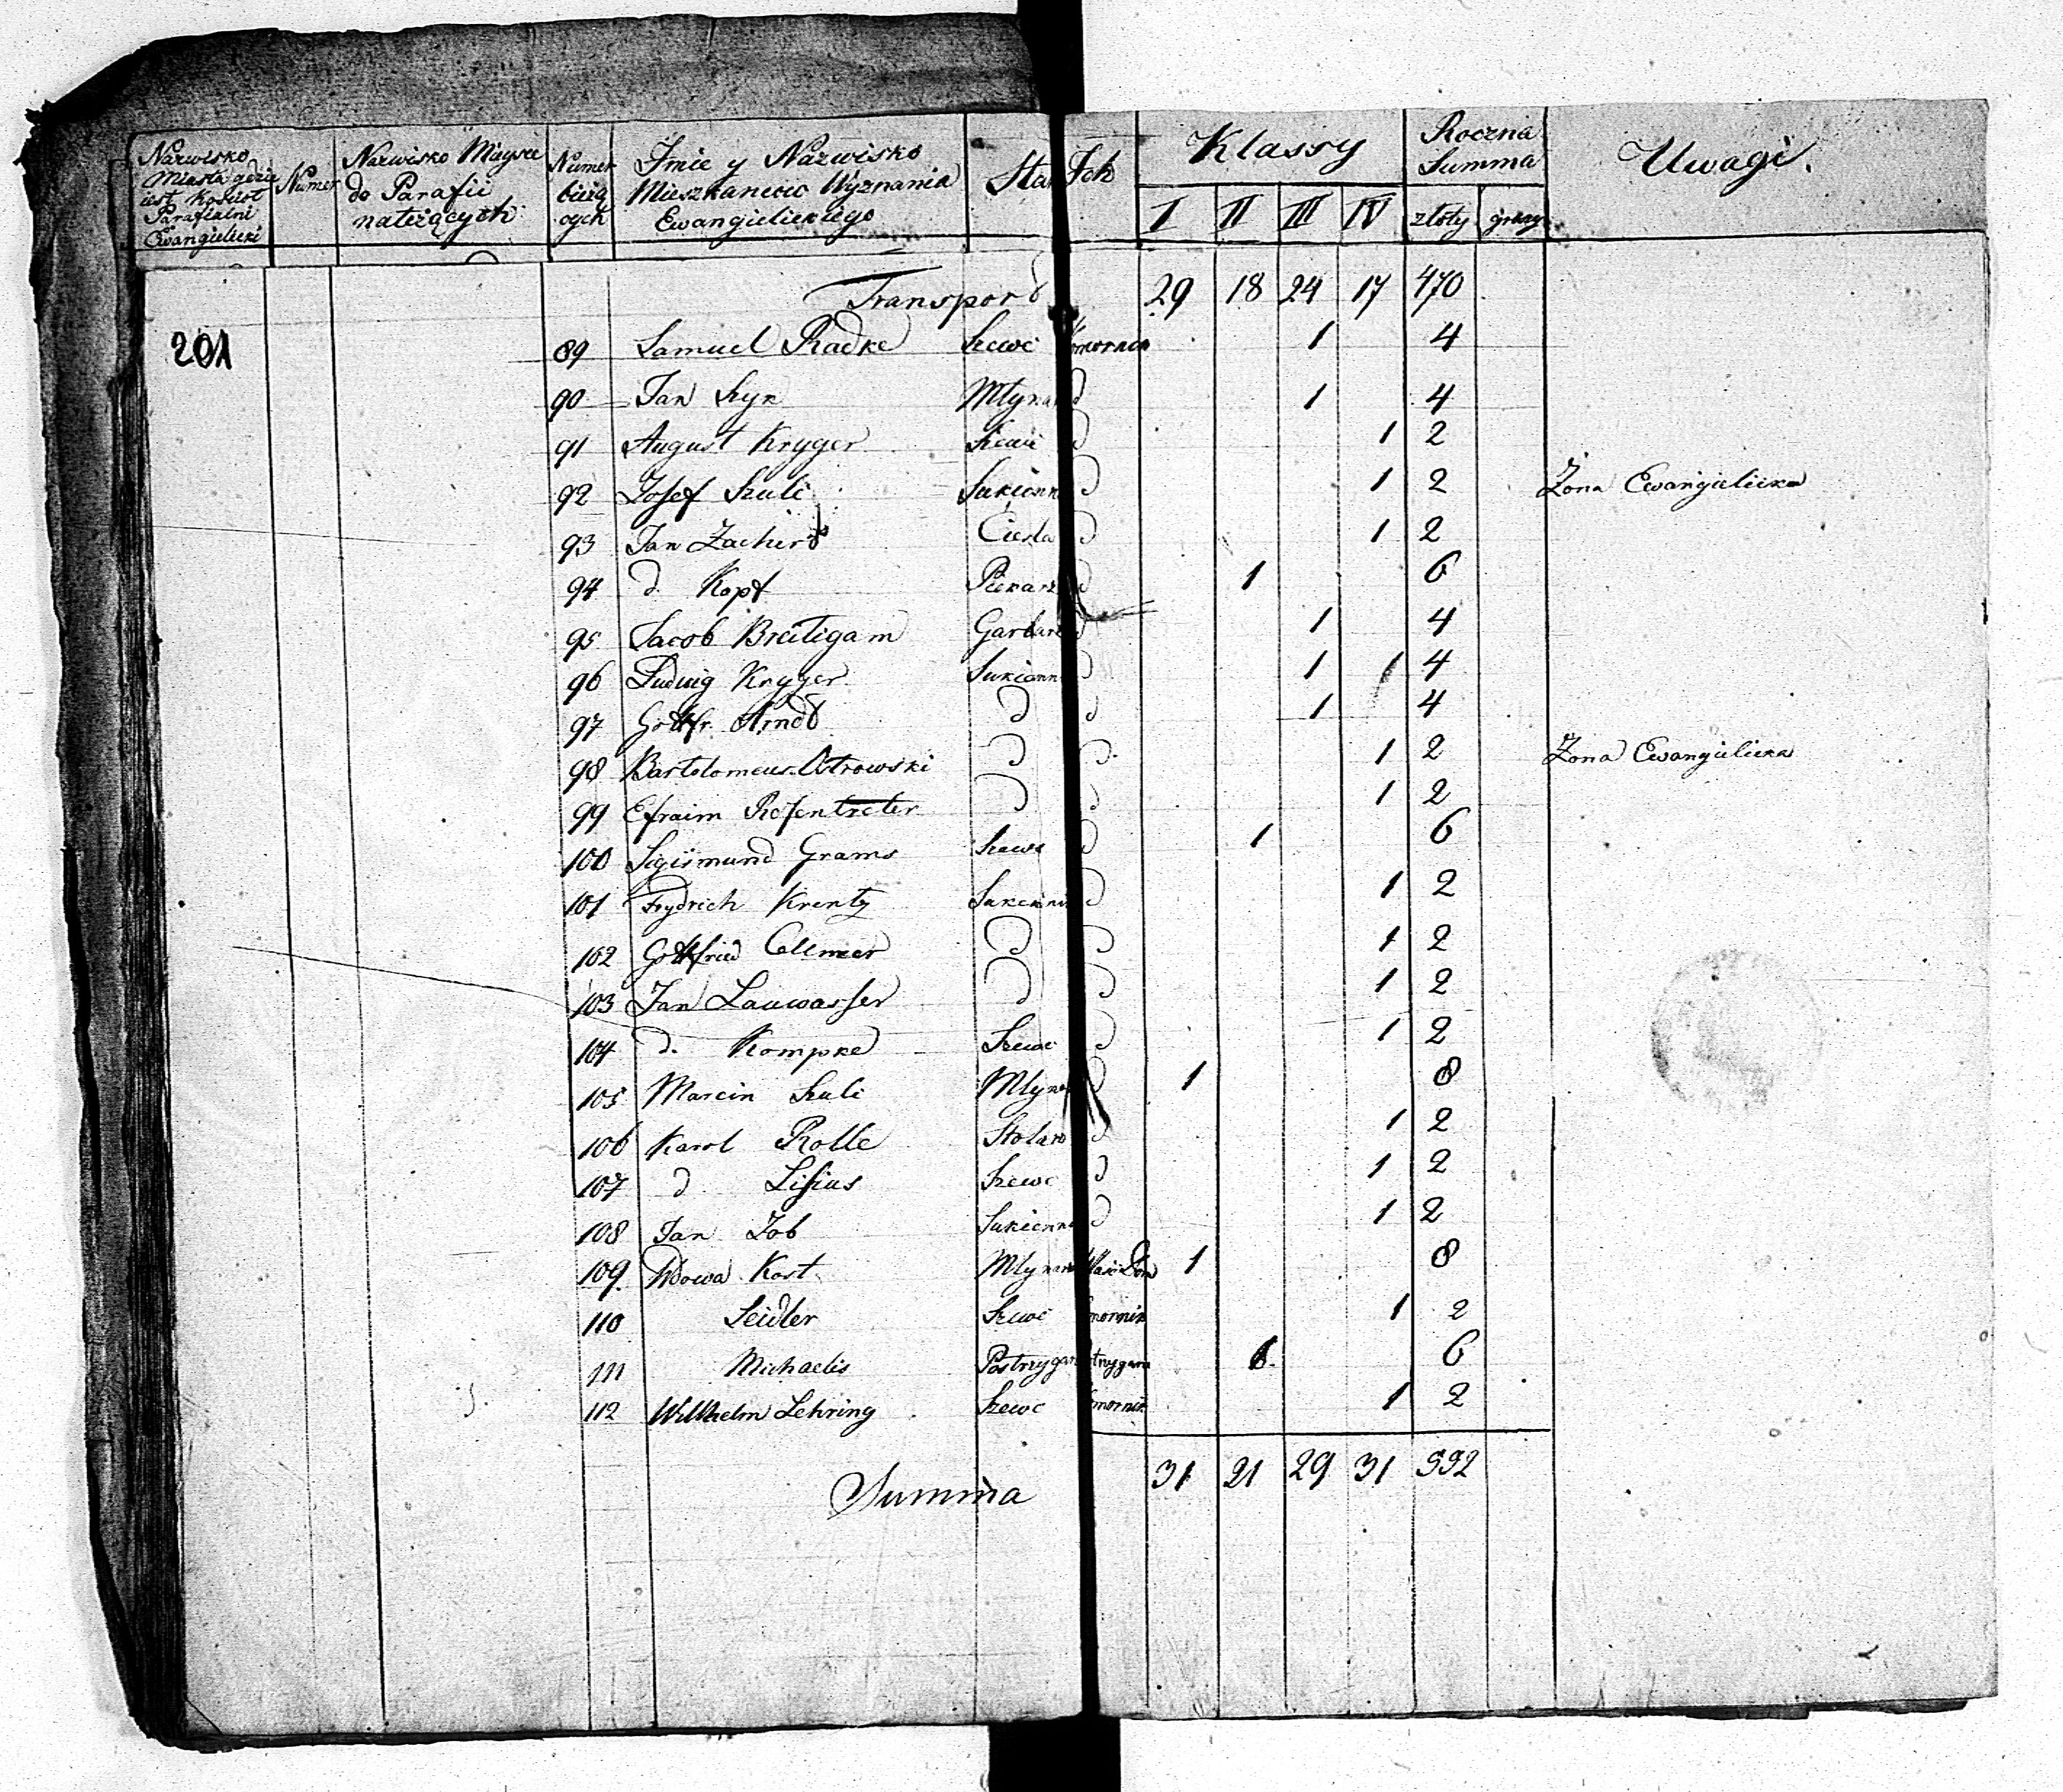 Nazwisko Miasta gdzie iest Kosciół Parafialni Ewangielicki | Numer | Nazwisko Mieysc do Parafii należących | Numer bieżących | Imie y Nazwisko Mieszkancow Wyznania Ewangielickiego | Stan Ich | Klassy I II III IV | Roczna Summa złoty groszy | Uwagi.
Transport 29 18 24 17 470
201
89 Samuel Radke Szewc Komornik 1 4
90 Jan Szyn Młynarz d 1 4
91 August Kryger Szewc d 1 2
92 Josef Szulc Sukienn d 1 2 Żona Ewangielicka
93 Jan Zachert Cieśla d 1 2
94 d. Kopf Piekarz d 1 6
95 Jacob Breitigam Garbarz d 1 4
96 Ludwig Kryger Sukienn d 1 1 4
97 Gottfr. Arndt d d 1 4
98 Bartolomeus Ostrowski d d 1 2 Żona Ewangielicka
99 Efraim Rosentreter d d 1 2
100 Sigismund Grams Szewc d 1 6
101 Frydrich Krentz Sukiennik d 1 2
102 Gottfried Collmer d d 1 2
103 Jan Lauwasser d d 1 2
104 d. Kompke Szewc d 1 2
105 Marcin Szulc Młyna d 1 8
106 Karol Rolle Stolarz d 1 2
107 d Lisius Szewc d 1 2
108 Jan Job Sukienn d 1 2
109. Wdowa Kost Młynarz 1 8
110 Seidler Szewc Komornik 1 2
111 Michaelis Postrzygarz 1 6
112 Willhelm Lehring Szewc Komornik 1 2
Summa 31 21 29 31 552